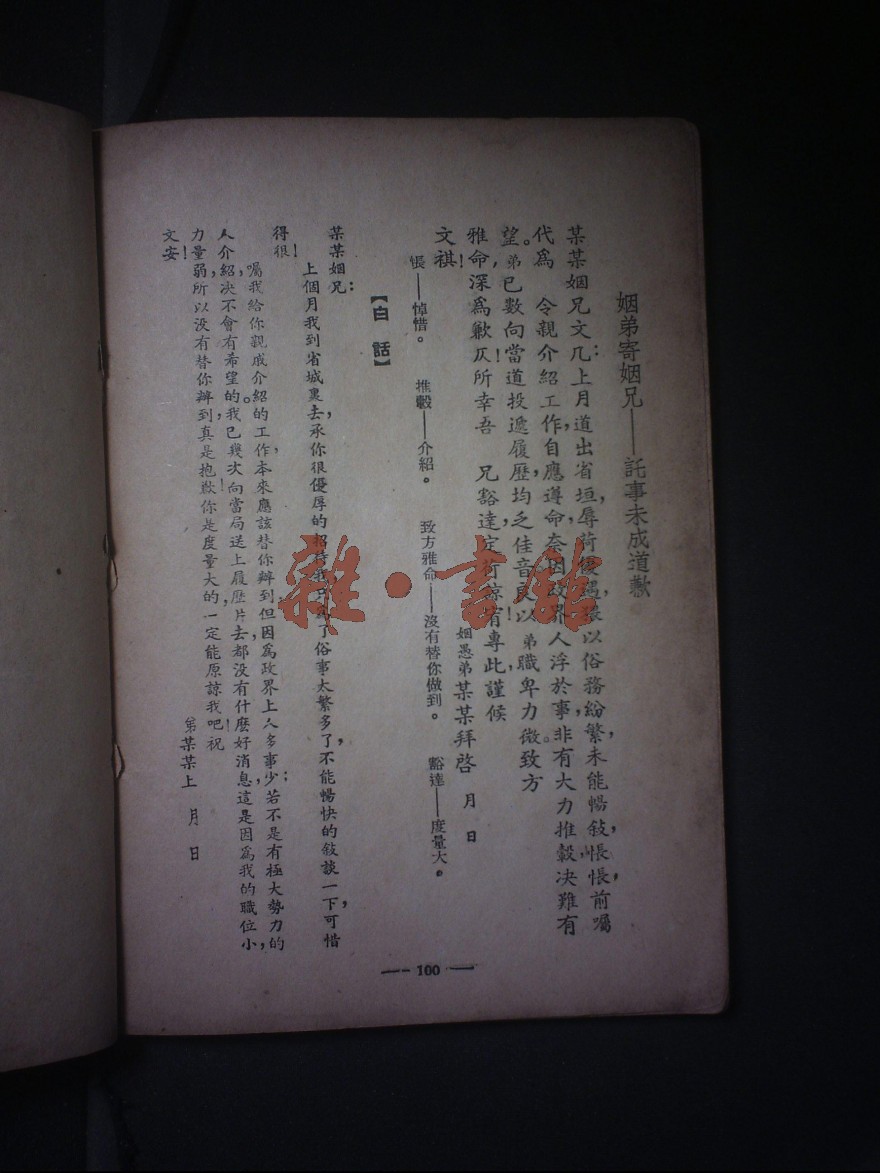 姻弟寄姻兄——託事未成道歉
某某姻兄文几：上月道出省垣，辱荷優遇，以俗務紛繁，未能暢敍，悵悵，前囑
代為　令親介紹工作，自應遵命，奈因政界人浮於事，非有大力推轂，决難有
望。弟已數向當道投遞履歷，均乏佳音，良以弟職卑力微。致方
雅命，深為歉仄！所幸吾　兄豁達，定荷諒宥！專此，謹候
文祺！
姻愚弟某某拜啓　月　日
悵——悼惜。　推轂——介紹。　致方雅命——沒有替你做到。　豁達——度量大。
【白話】
某某姻兄：
上個月我到省城裏去，承你很優厚的招待，我只為了俗事太繁多了，不能暢快的敍談一下，可惜
得很！
囑我給你親戚介紹的工作，本來應該替你辦到，但因為政界上人多事少；若不是有極大勢力的
人介紹，决不會有希望的。我已幾次向當局送上履歷片去，都沒有什麽好消息，這是因為我的職位小，
力量弱，所以沒有替你辦到，真是抱歉，你是度量大的，一定能原諒我吧！祝
文安！
弟某某上　月　日
—— 100 ——
雜·書館